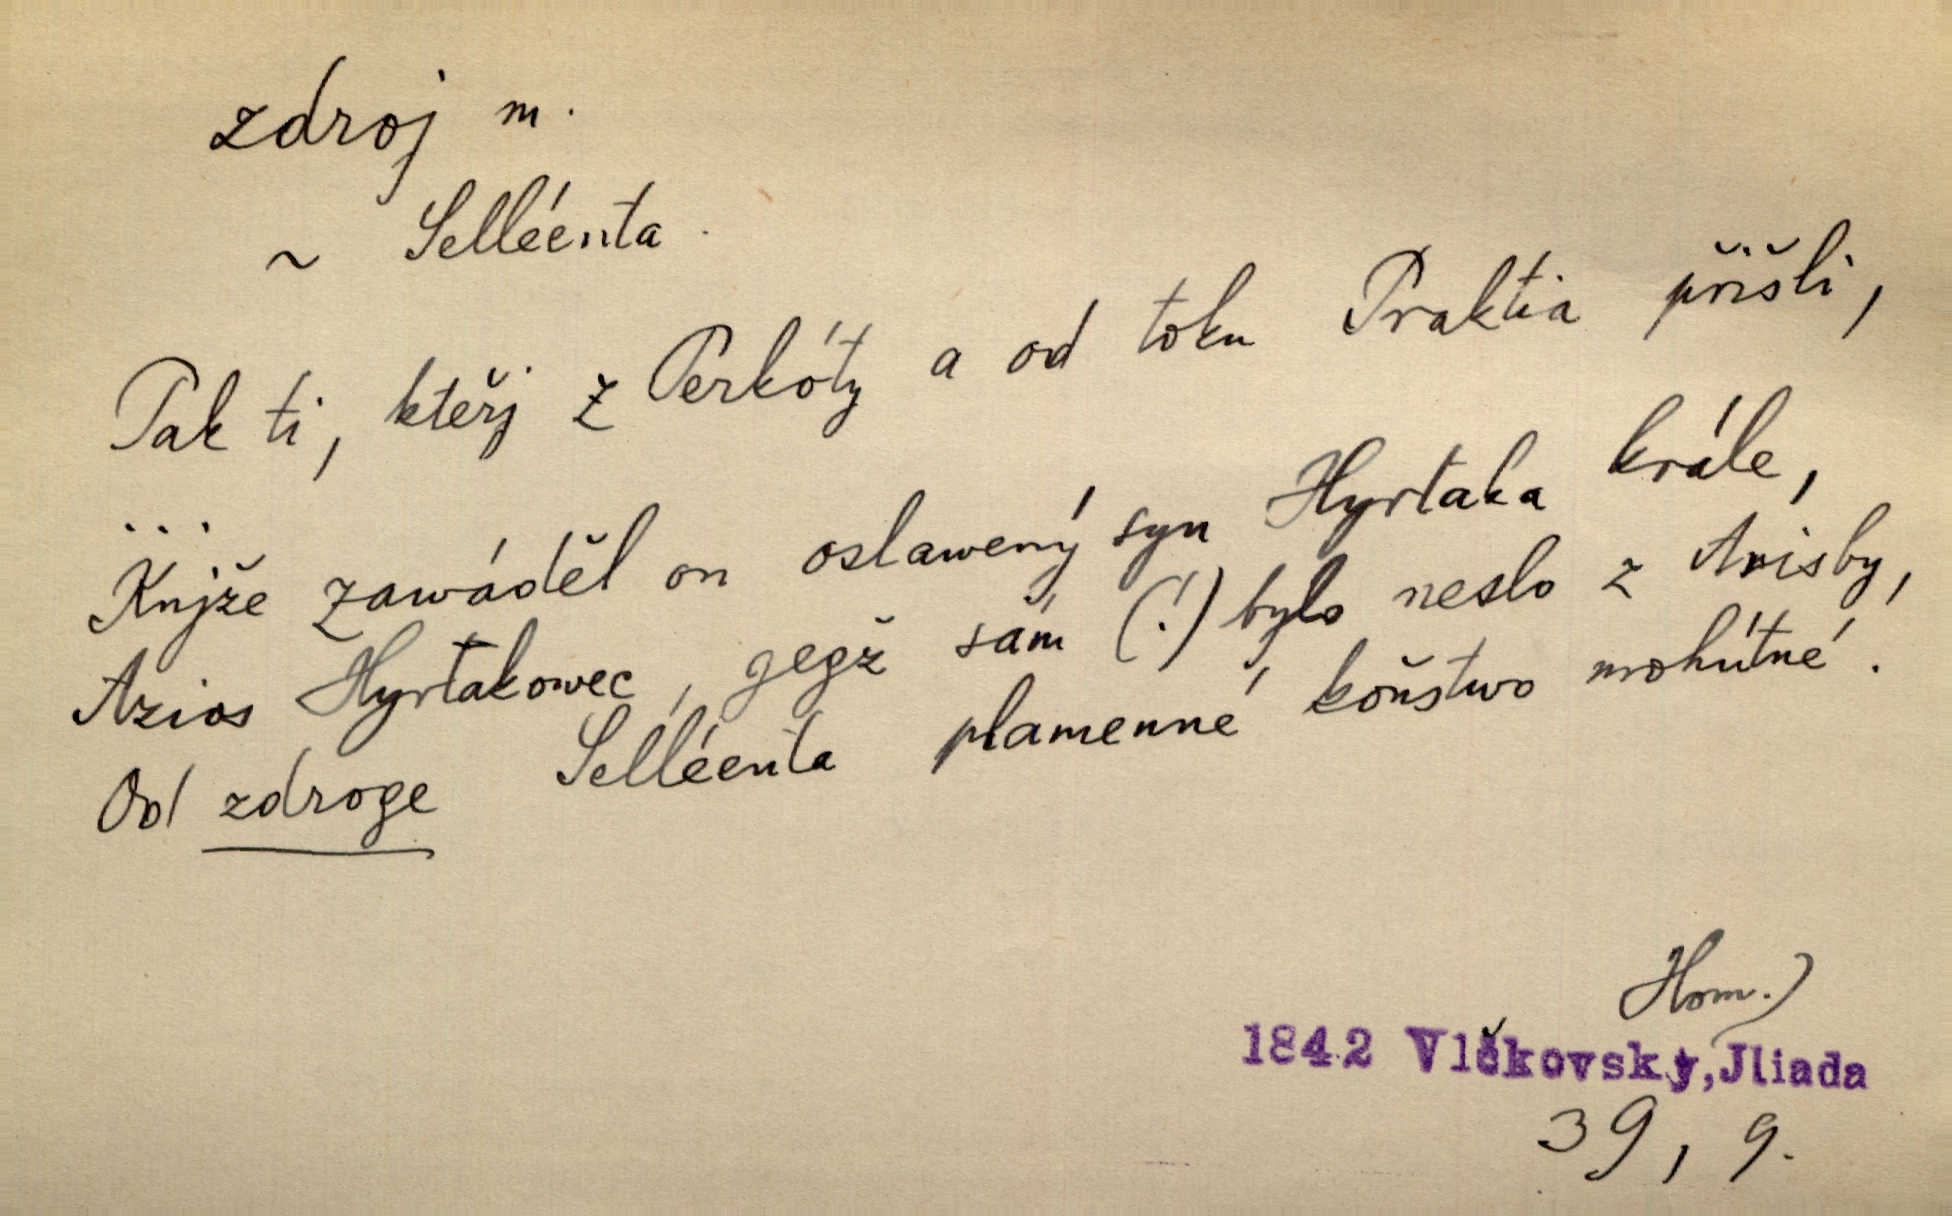 zdroj m.
~ Selléenta.
Tak ti, kteřj z Perkóty a od toku Praktia přišli,
...
Knjže zawáděl on oslawený syn Hyrtaka krále,
Azios Hyrtakowec, gegž sám (!) bylo neslo z Arisby,
Od zdroge Selléenta plamenné koňstwo mohútné.
Hom.)
1842 Vlčkovský, Jliada
39, 9.